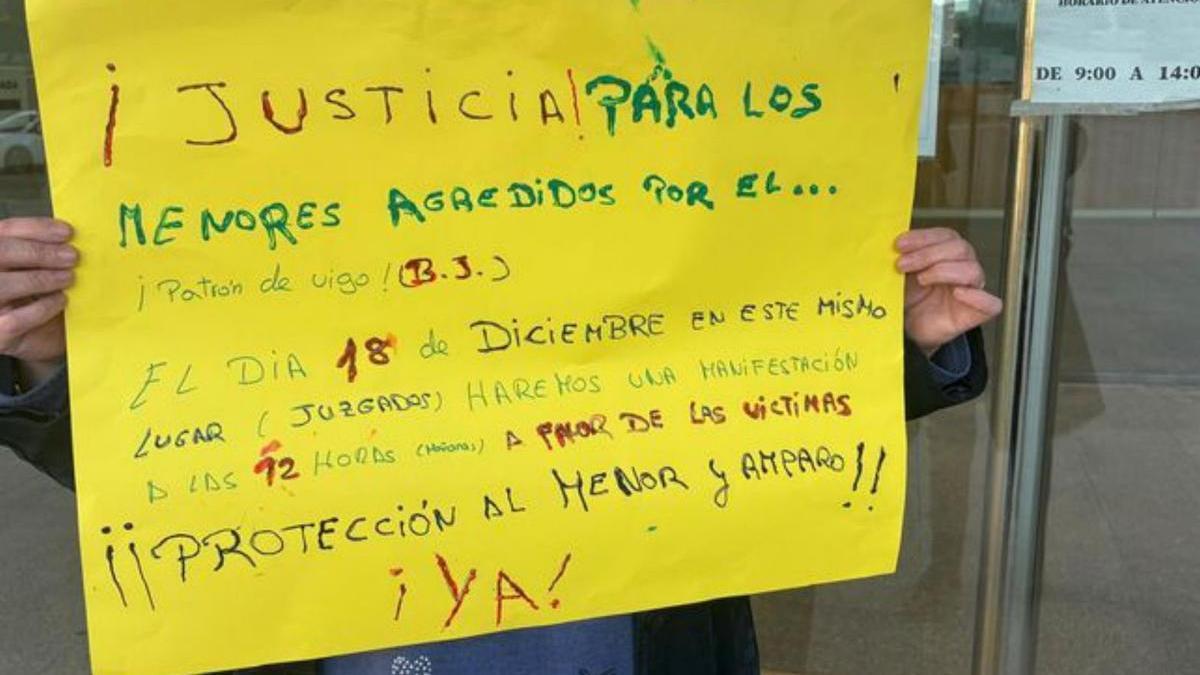 HORARIO DE ATENCIÓN
DE 9:00 A 14:0
¡JUSTICIA! PARA LOS
MENORES AGREDIDOS POR EL...
¡Patrón de vigo! (B.J.)
EL DIA 18 de DICIEMBRE EN ESTE MISMO
LUGAR (JUZGADOS) HAREMOS UNA MANIFESTACIÓN
A LAS 12 HORAS (Mañana) A FAVOR DE LAS VICTIMAS
¡¡PROTECCIÓN AL MENOR y AMPARO!!
¡YA!